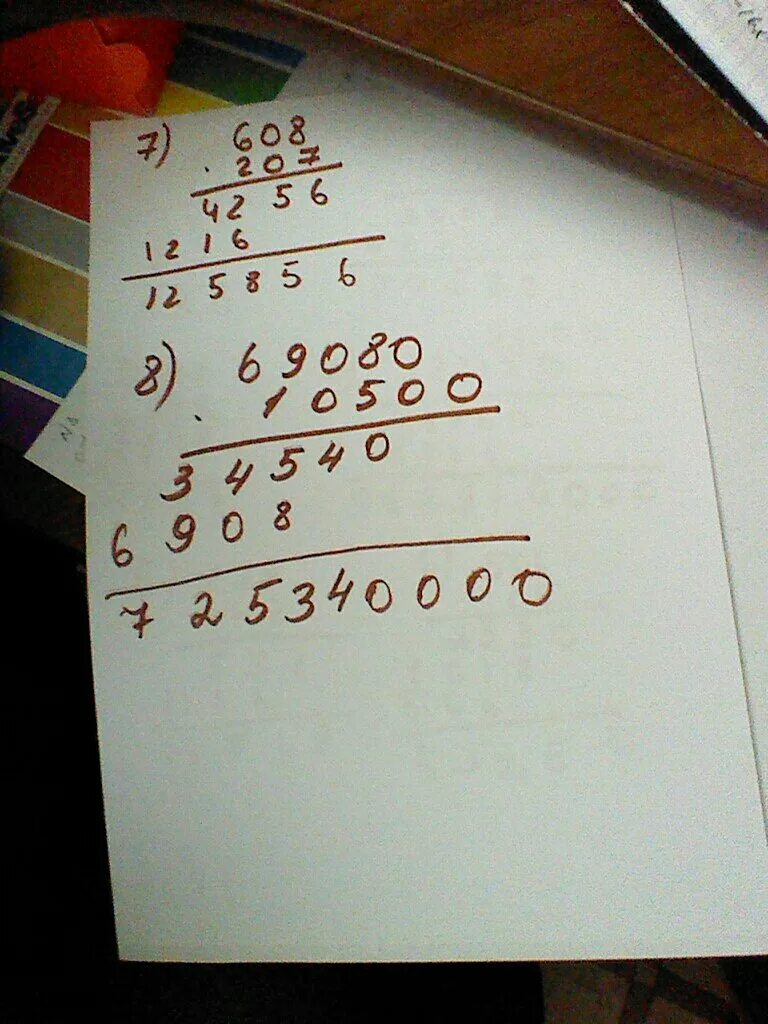 7) 608
. 207
4256
1216
125856
8) 69080
. 10500
34540
6908
725340000